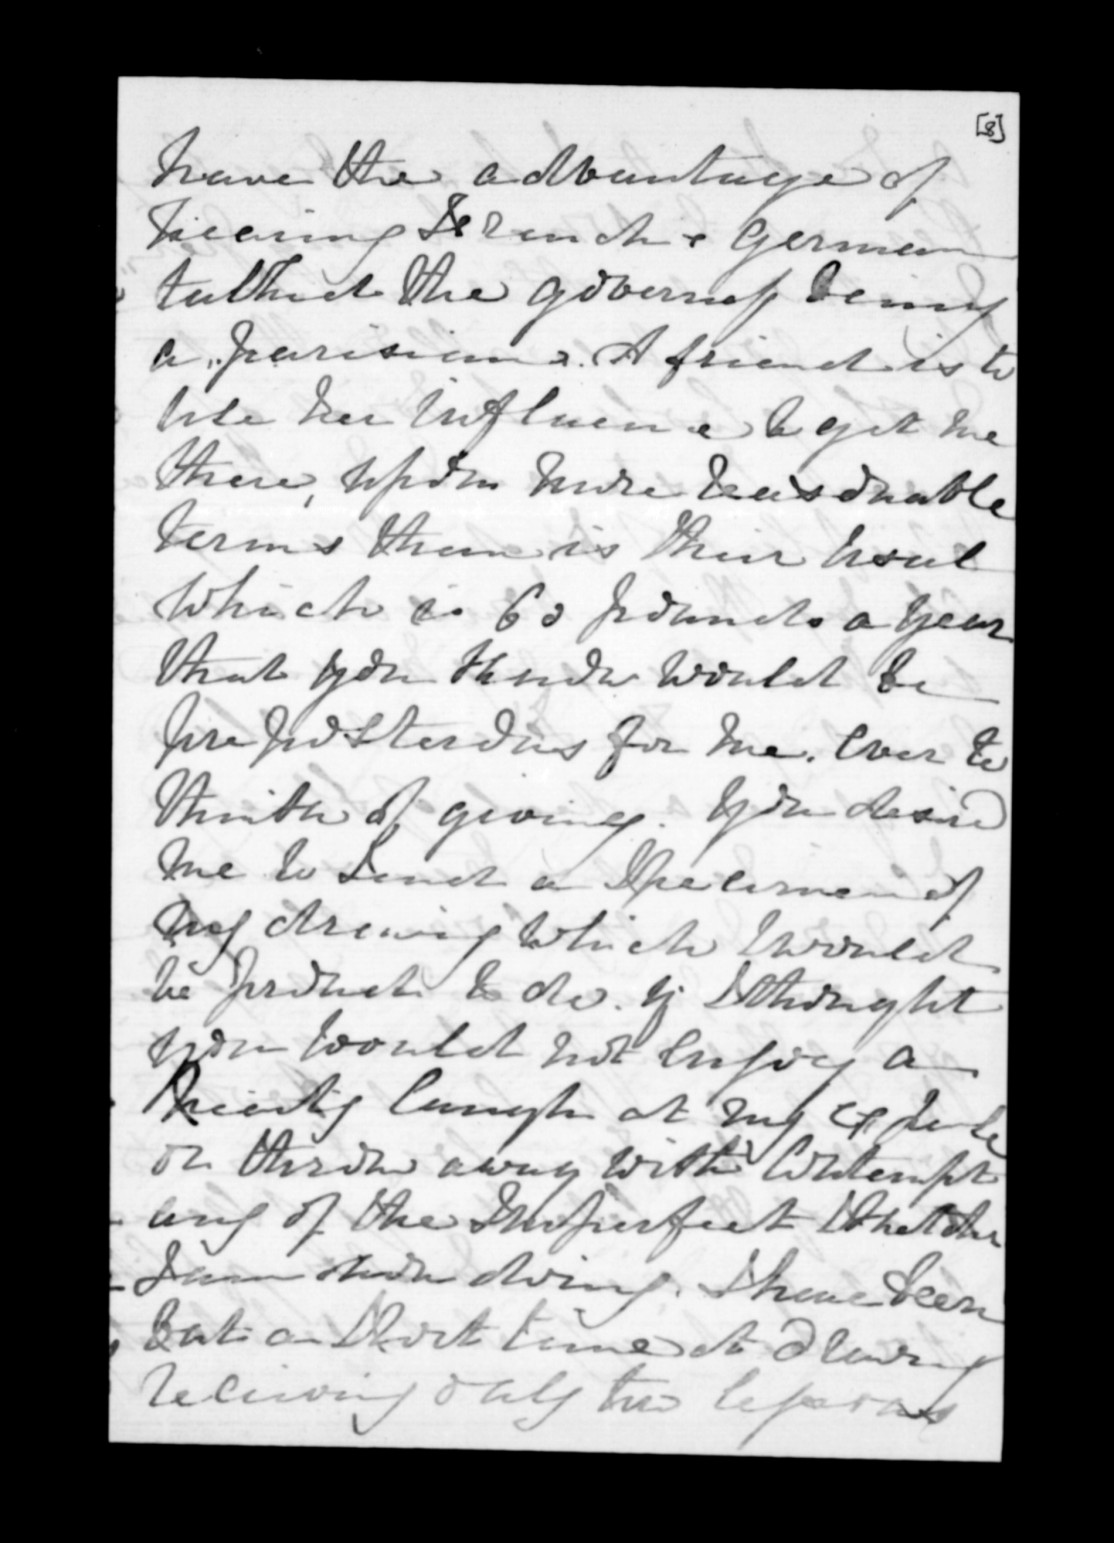 [8]
have the advantage of
hearing French & German
talked the governess being
a Parisian. A friend is to
use her influence to get me
there, upon more reasonable
terms than is their usual
which is 60 pounds a year
that you know would be
preposterous for me. ever to
think of giving. You desire
me to send a specimen of
my drawing which I would
be proud to do. if I thought
you would not enjoy a
hearty laugh at my expense
or throw away with contempt
any of the imperfect sketches
I am now doing. I have been
but a short time at drawing
receiving only two lessons